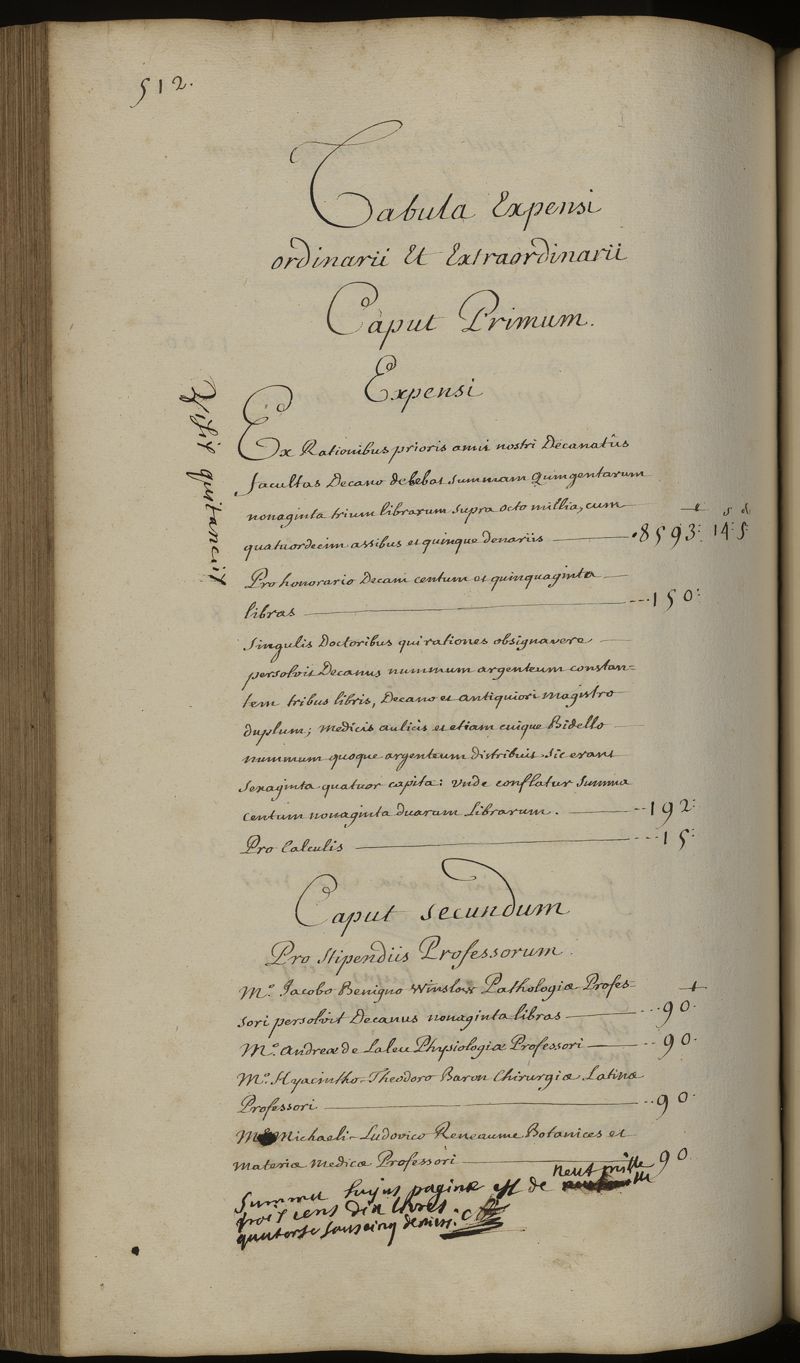 512.
Tabula Expensi
ordinarii Et Extraordinarii
Caput Primum.
Expensi
Visis quitanciis
Ex Rationibus prioris anni nostri Decanatûs
facultas Decano debebat summam quingentarum
nonaginta trium librarum supra octo millia, cum
quatuordecim assibus et quinque denariis — 8593: 14: 5
Pro honorario Decani centum et quinquaginta
libras — 150:
Singulis Doctoribus qui rationes obsignavere
persolvit Decanus nummum argenteum constan=
tem tribus libris, Decano et antiquiori magistro
duplum; medicis aulicis et etiam cuique Bidello
nummum quoque argenteum distribuit. Sic erant
sexaginta quatuor capita: unde conflatur summa
centum nonaginta duarum librarum. — 192:
Pro Calculis — 15:
Caput secundum
Pro Stipendiis Professorum.
M.o Jacobo Benigno Winslow Pathologiæ Profes=
sori persolvit Decanus nonaginta libras — 90.
M.o Andreæ de Laleu Physiologiæ Professori — 90.
M.o Hyacintho-Theodoro Baron Chirurgiæ Latinæ
Professori — 90.
M.o Michaeli-Ludovico Reneaume Botanices et
materiæ medicæ Professori — 90
Summa hujus paginæ est de neuf mille
trois cens dix livres
quatorse sous cinq deniers.